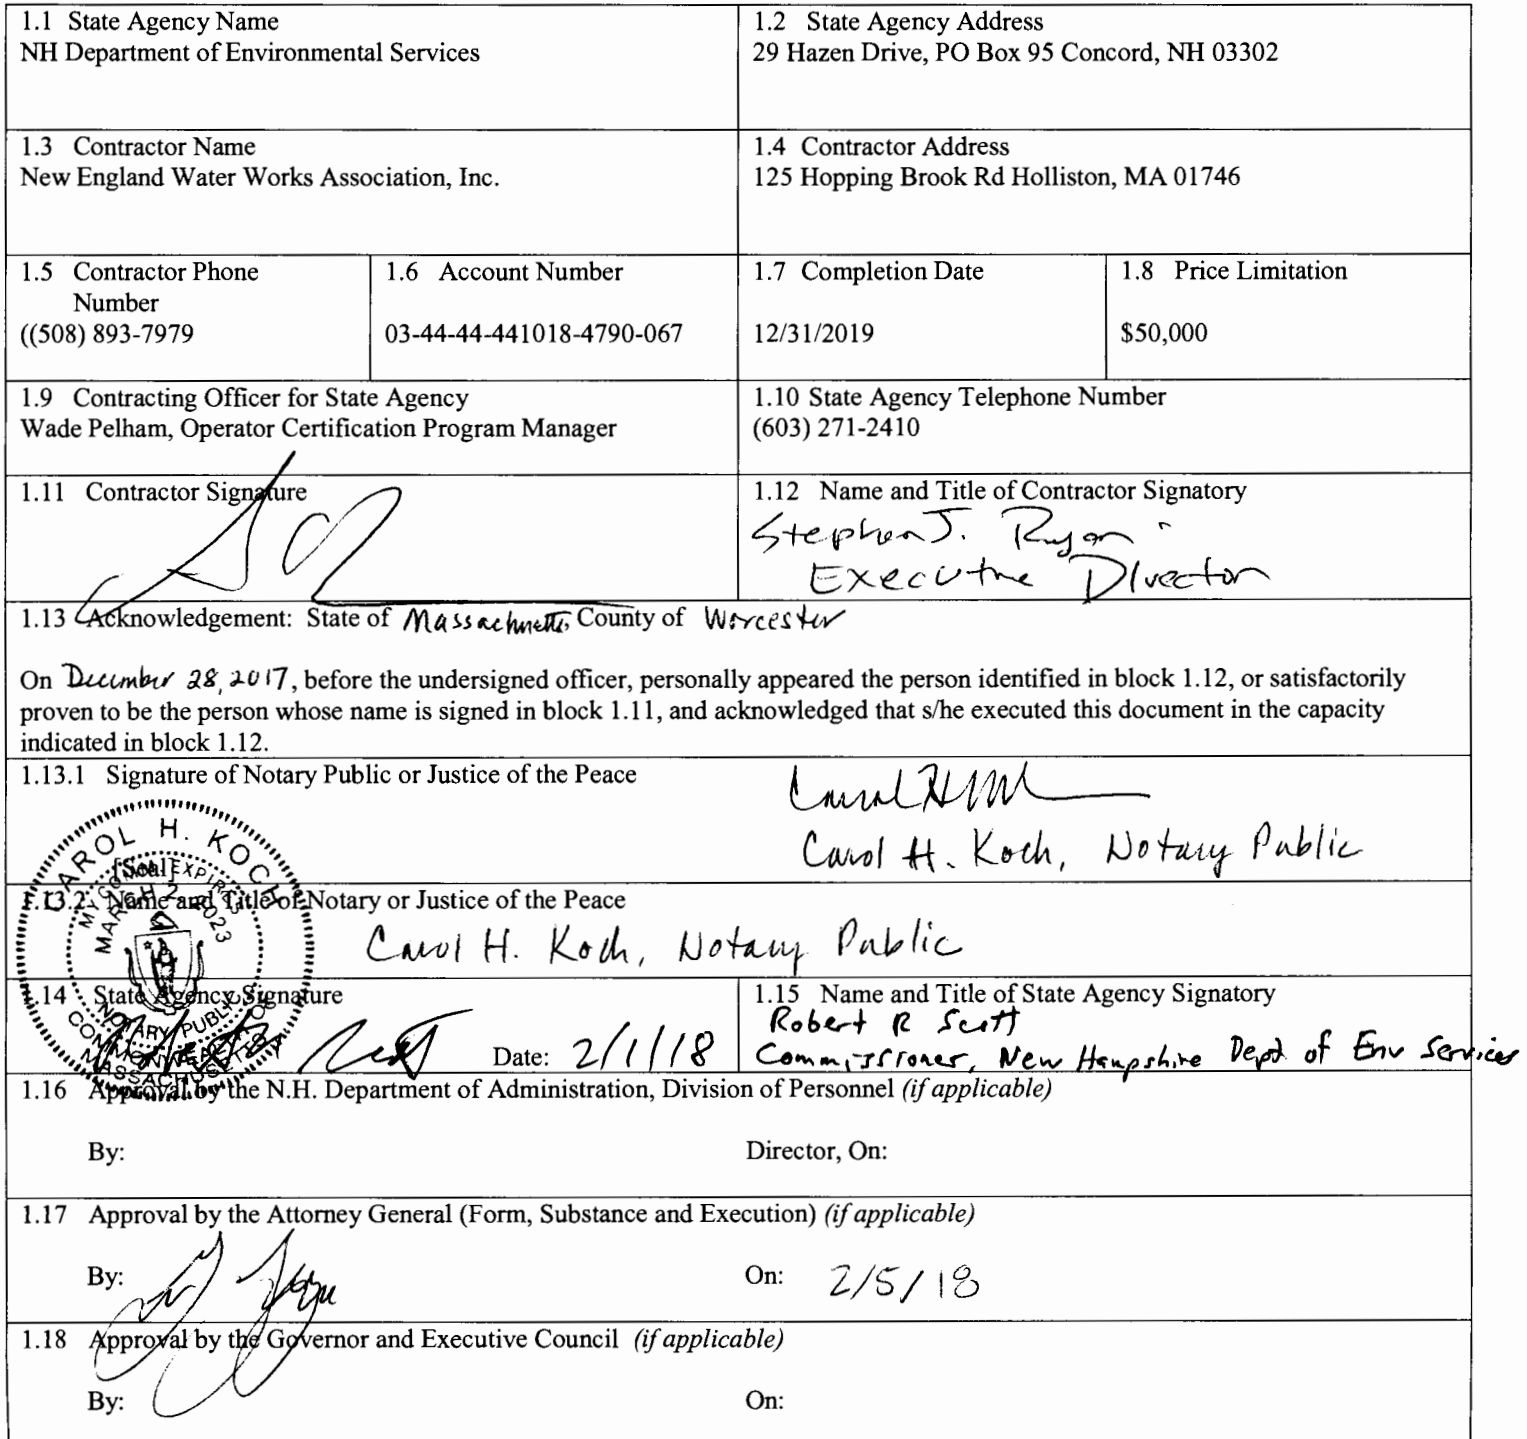 1.1 State Agency Name
NH Department of Environmental Services
1.2 State Agency Address
29 Hazen Drive, PO Box 95 Concord, NH 03302
1.3 Contractor Name
New England Water Works Association, Inc.
1.4 Contractor Address
125 Hopping Brook Rd Holliston, MA 01746
1.5 Contractor Phone
Number
((508) 893-7979
1.6 Account Number
03-44-44-441018-4790-067
1.7 Completion Date
12/31/2019
1.8 Price Limitation
$50,000
1.9 Contracting Officer for State Agency
Wade Pelham, Operator Certification Program Manager
1.10 State Agency Telephone Number
(603) 271-2410
1.11 Contractor Signature
1.12 Name and Title of Contractor Signatory
Stephen J. Ryan
Executive Director
1.13 Acknowledgement: State of Massachusetts, County of Worcester
On December 28, 2017, before the undersigned officer, personally appeared the person identified in block 1.12, or satisfactorily
proven to be the person whose name is signed in block 1.11, and acknowledged that s/he executed this document in the capacity
indicated in block 1.12.
1.13.1 Signature of Notary Public or Justice of the Peace
Carol H. Koch, Notary Public
[Seal]
CAROL H. KOCH
MY COMM. EXPIRES
MARCH 2, 2023
NOTARY PUBLIC
COMMONWEALTH OF
MASSACHUSETTS
1.13.2 Name and Title of Notary or Justice of the Peace
Carol H. Koch, Notary Public
1.14 State Agency Signature
Date: 2/1/18
1.15 Name and Title of State Agency Signatory
Robert R Scott
Commissioner, New Hampshire Dept of Env Services
1.16 Approval by the N.H. Department of Administration, Division of Personnel (if applicable)
By:
Director, On:
1.17 Approval by the Attorney General (Form, Substance and Execution) (if applicable)
By:
On: 2/5/18
1.18 Approval by the Governor and Executive Council (if applicable)
By:
On: